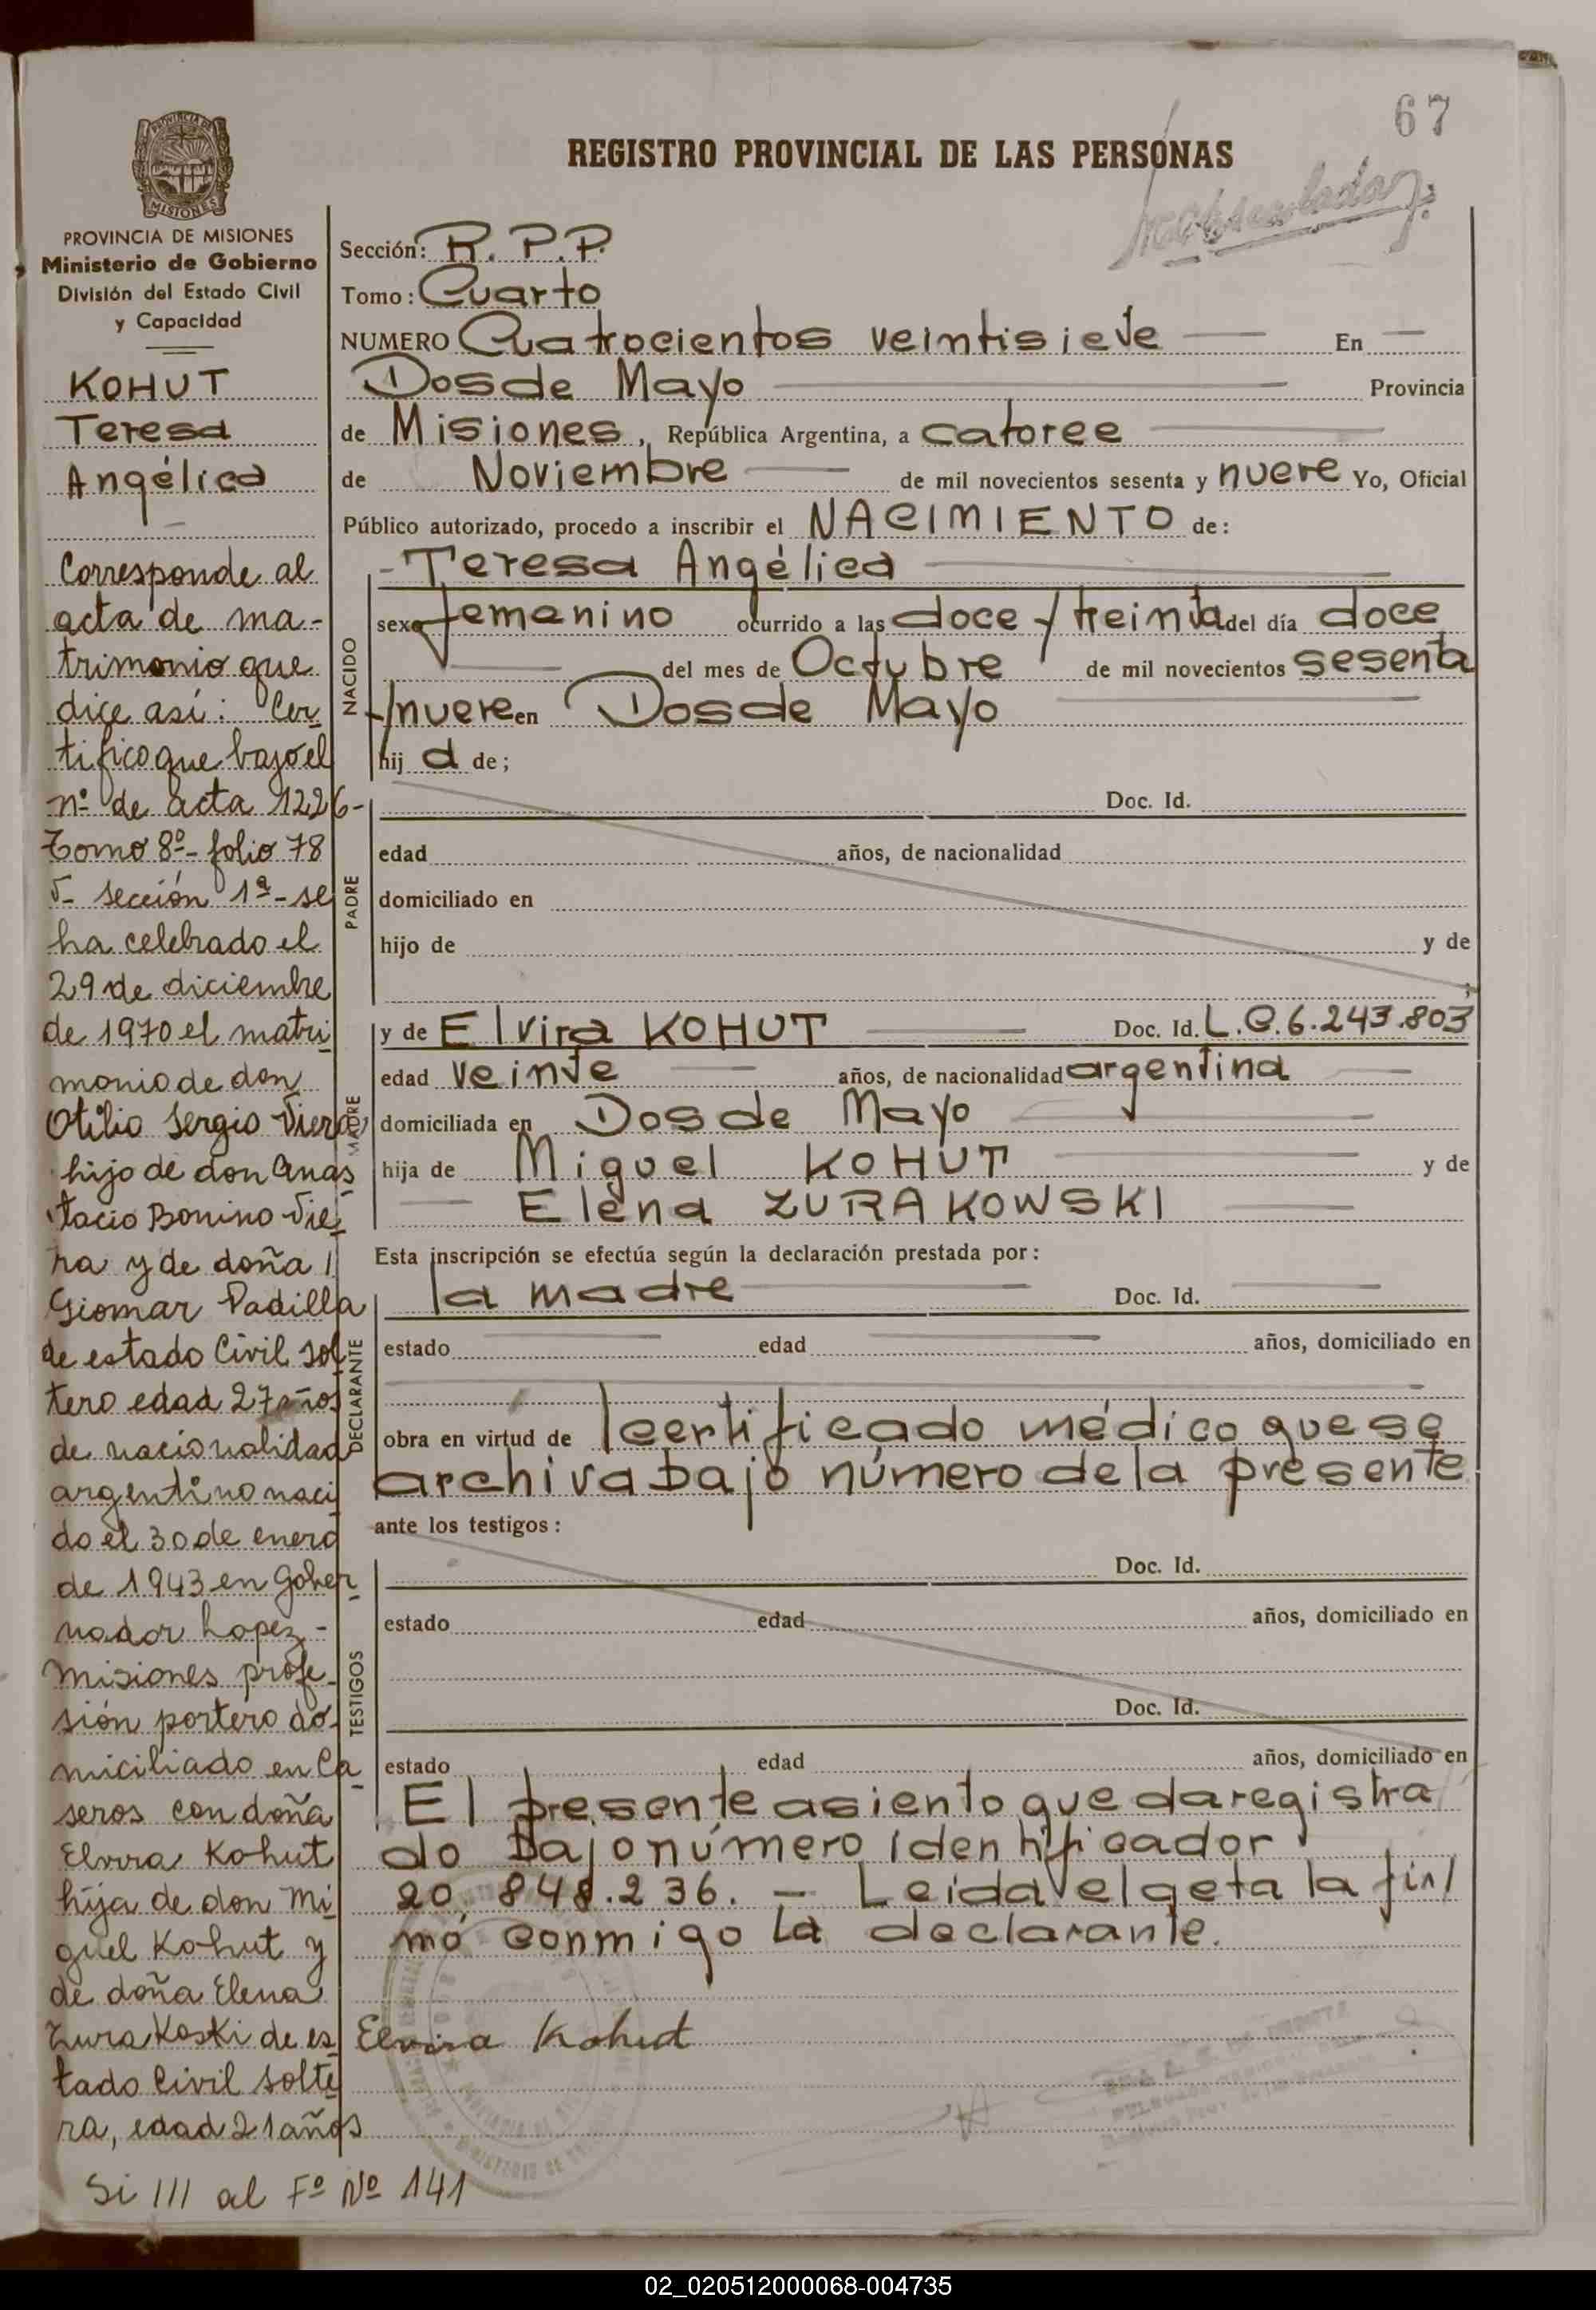 67
REGISTRO PROVINCIAL DE LAS PERSONAS
PROVINCIA DE
MISIONES
PROVINCIA DE MISIONES
Ministerio de Gobierno
División del Estado Civil
y Capacidad
KOHUT
Teresa
Angélica
Corresponde al
acta de ma-
trimonio que
dice así: Cer
tifico que bajo el
nº de acta 1226-
Tomo 8º- folio 78
Sección 1ª - se
ha celebrado el
29 de diciembre
de 1970 el matri
monio de don
Otilio Sergio Viera
hijo de don Anas
tacio Bonino Vie
ra y de doña
Giomar Padilla
de estado Civil sol
tero edad 27 años
de nacionalidad
argentino naci
do el 30 de enero
de 1943 en Gober
nador Lopez -
Misiones profe
sión portero do-
miciliado en Ca
seros con doña
Elvira Kohut
hija de don Mi
guel Kohut y
de doña Elena
ZuraKoski de es
tado Civil solte
ra, edad 21 años
Si /// al Fº Nº 141
Sección: R. P. P.
Tomo: Cuarto
NUMERO Cuatrocientos veintisiete En
Dos de Mayo Provincia
de Misiones, República Argentina, a catorce
de Noviembre de mil novecientos sesenta y nueve Yo, Oficial
Público autorizado, procedo a inscribir el NACIMIENTO de:
NACIDO
- Teresa Angélica
sexo femenino ocurrido a las doce y treinta del día doce
del mes de Octubre de mil novecientos sesenta
y nueve en Dos de Mayo
hij a de;
PADRE
Doc. Id.
edad años, de nacionalidad
domiciliado en
hijo de y de
;
MADRE
y de Elvira KOHUT Doc. Id. L.C. 6.243.803
edad veinte años, de nacionalidad argentina
domiciliada en Dos de Mayo
hija de Miguel KOHUT y de
Elena ZURAKOWSKI
Esta inscripción se efectúa según la declaración prestada por:
DECLARANTE
la madre Doc. Id.
estado edad años, domiciliado en
obra en virtud de certificado médico que se
archiva bajo número de la presente
ante los testigos:
TESTIGOS
Doc. Id.
estado edad años, domiciliado en
Doc. Id.
estado edad años, domiciliado en
El presente asiento queda registra
do bajo número identificador
20.848.236. - Leída el acta la fir/
mó conmigo la declarante.
Elvira Kohut
02_020512000068-004735